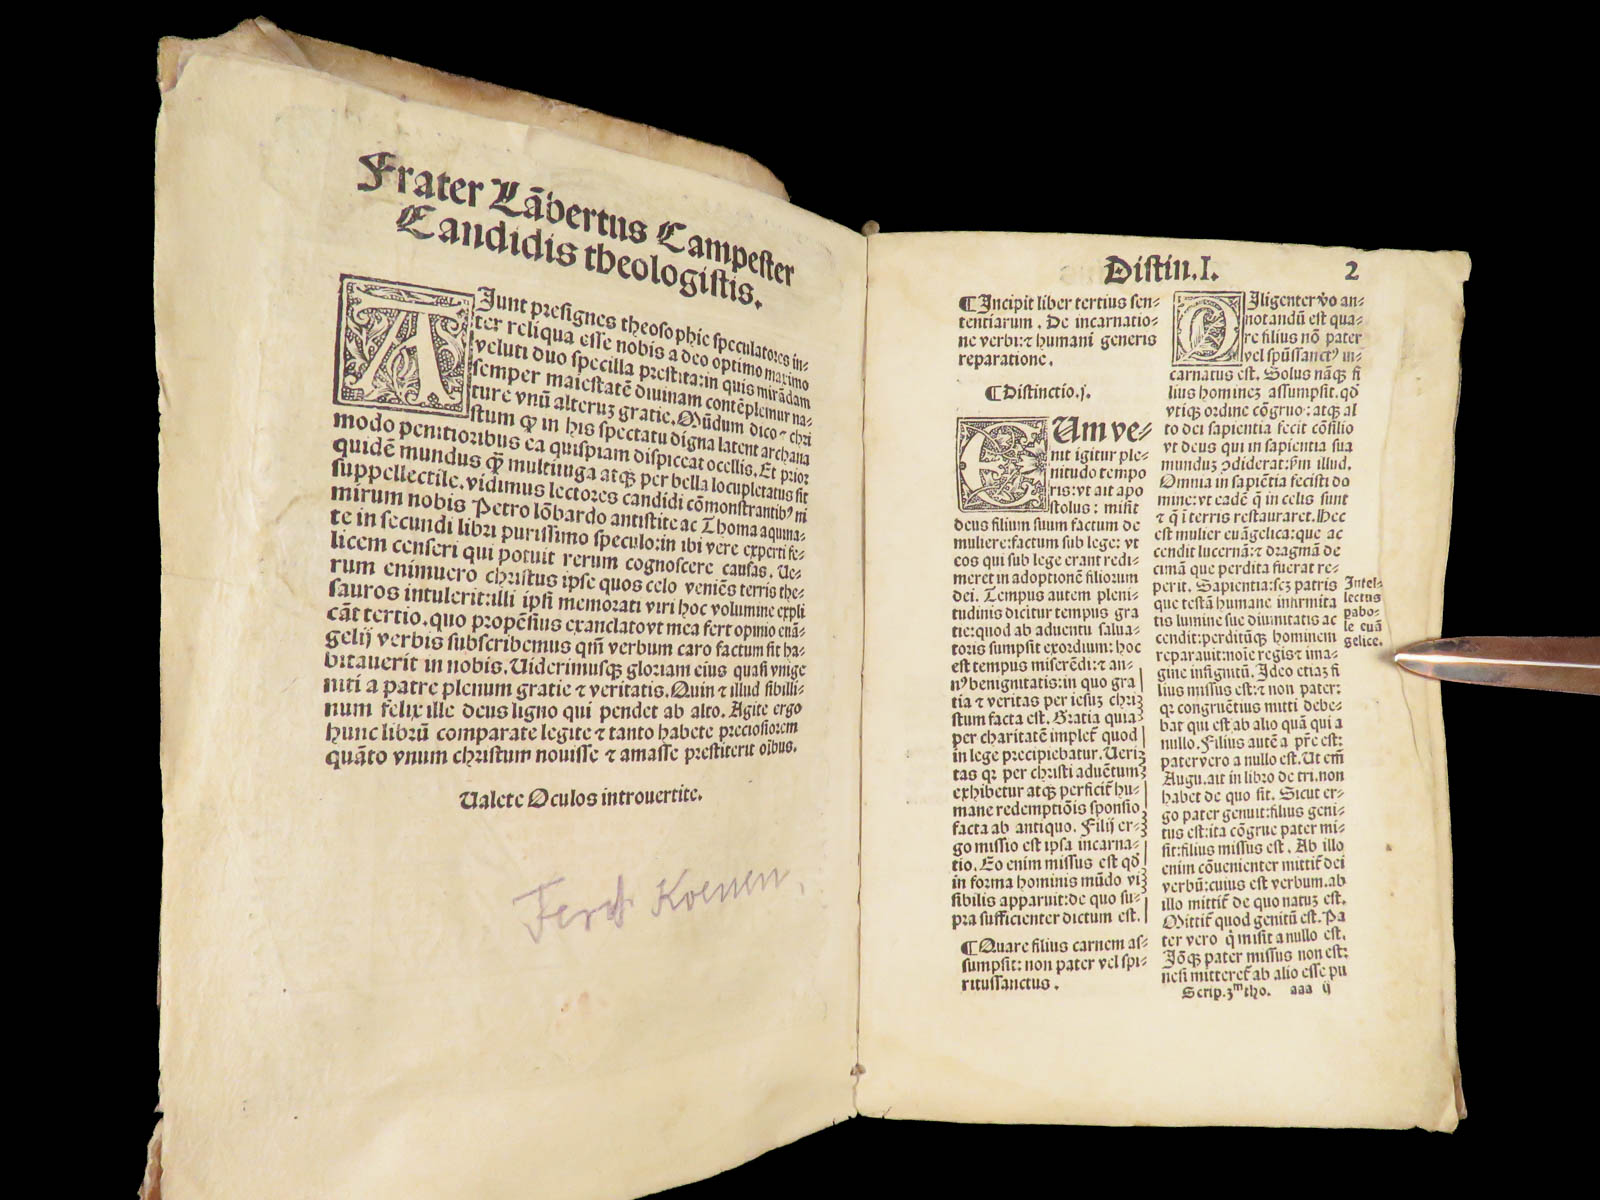 Frater Lābertus Campester
Candidis theologistis.
AIunt presignes theosophie speculatores in-
ter reliqua esse nobis a deo optimo maximo
veluti duo specilla prestita:in quis mirādam
semper maiestatē diuinam contēplemur na-
ture vnū alteruꝫ gratie. Mūdum dico ⁊ chri
stum ꝙ in his spectatu digna latent archana
modo penitioribus ea quispiam dispiceat ocellis. Et prior
quidē mundus ꝙ̄ multiiuga atqꝫ per bella locupletatus sit
suppellectile. vidimus lectores candidi cōmonstrantibꝰ ni
mirum nobis Petro lōbardo antistite ac Thoma aquina-
te in secundi libri purissimo speculo:in ibi vere experti fe-
licem censeri qui potuit rerum cognoscere causas. Ue-
rum enimuero christus ipse quos celo veniēs terris the-
sauros intulerit:illi ipsi memorati viri hoc volumine expli
cāt tertio. quo propēsius exanclato vt mea fert opinio euā-
gelij verbis subscribemus qm̄ verbum caro factum sit ha-
bitauerit in nobis. Uiderimusqꝫ gloriam eius quasi vnige
niti a patre plenum gratie ⁊ veritatis. Quin ⁊ illud sibilli-
num felix ille deus ligno qui pendet ab alto. Agite ergo
hunc librū comparate legite ⁊ tanto habete preciosiorem
quāto vnum christum nouisse ⁊ amasse prestiterit oībus.
Ualete Oculos introuertite.
Ferd Koenen.
Distin.I. 2
¶Incipit liber tertius sen-
tentiarum. De incarnatio-
ne verbi:⁊ humani generis
reparatione.
¶Distinctio.j.
CUm ve-
nit igitur ple-
nitudo tempo
ris:vt ait apo
stolus: misit
deus filium suum factum de
muliere:factum sub lege: vt
eos qui sub lege erant redi-
meret in adoptionē filiorum
dei. Tempus autem pleni-
tudinis dicitur tempus gra
tie:quod ab aduentu salua-
toris sumpsit exordium: hoc
est tempus miserēdi:⁊ an-
nꝰ benignitatis:in quo gra
tia ⁊ veritas per iesuꝫ chri-
stum facta est. Gratia quia-
per charitatē implet̄ quod
in lege precipiebatur. Ueri-
tas qꝛ per christi aduētum-
exhibetur atqꝫ perficit̄ hu-
mane redemptiōis sponsio
facta ab antiquo. Filij er-
go missio est ipsa incarna-
tio. Eo enim missus est qđ
in forma hominis mūdo vi-
sibilis apparuit:de quo su-
pra sufficienter dictum est.
¶Quare filius carnem as-
sumpsit: non pater vel spi-
ritussanctus.
DIligenter v̄o an-
notandū est qua-
re filius nō pater
vel sp̄ussanctꝰ in-
carnatus est. Solus nāqꝫ fi
lius hominez assumpsit. qđ
vtiqꝫ ordine cōgruo: atqꝫ al
to dei sapientia fecit cōsilio
vt deus qui in sapientia sua
munduꝫ ꝯdiderat:ẜm illud.
Omnia in sapiētia fecisti do
mine:vt eadē q̄ in celis sunt
⁊ q̄ ī terris restauraret. Hec
est mulier euāgelica:que ac
cendit lucernā:⁊ dragmā de
cimā que perdita fuerat re-
perit. Sapientia:scꝫ patris
que testā humane infirmita
tis lumine sue diuinitatis ac
cendit:perditūqꝫ hominem
reparauit:noīe regis⁊ ima-
gine insignitū. Ideo etiaꝫ fi
lius missus est:⁊ non pater:
qꝛ congruētius mitti debe-
bat qui est ab alio quā qui a
nullo. Filius autē a pr̄e est:
pater vero a nullo est. Ut em̄
Augu. ait in libro de tri. non
habet de quo sit. Sicut er-
go pater genuit:filius geni-
tus est:ita cōgrue pater mi-
sit:filius missus est. Ab illo
enim cōuenienter mittit̄ dei
verbū:cuius est verbum. ab
illo mittit̄ de quo natuꝫ est.
Mittit̄ quod genitū est. Pa
ter vero q̄ misit a nullo est.
Iōqꝫ pater missus non est:
nesi mitteret̄ ab alio esse pu
Intel-
lectus
pabo-
le euā
gelice.
Scrip.3ᵐ tho. aaa ij